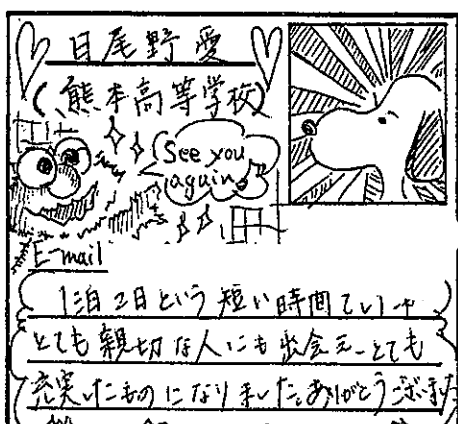 日尾野愛
(熊本高等学校)
See you
again
E-mail
1泊2日という短い時間でしたが
とても親切な人にも出会え、とても
充実したものになりました。ありがとうございました